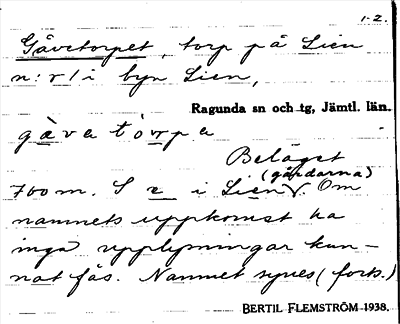 1-2.
Gåvetorpet, torp på Lien
n:r 1 i byn Lien,
Ragunda sn och tg, Jämtl. län.
gàva tòrpa
Beläget
(gårdarna)
700 m. S r i Lien V. Om
namnets uppkomst ha
inga upplysningar kun-
nat fås. Namnet synes (forts.)
BERTIL FLEMSTRÖM 1938.